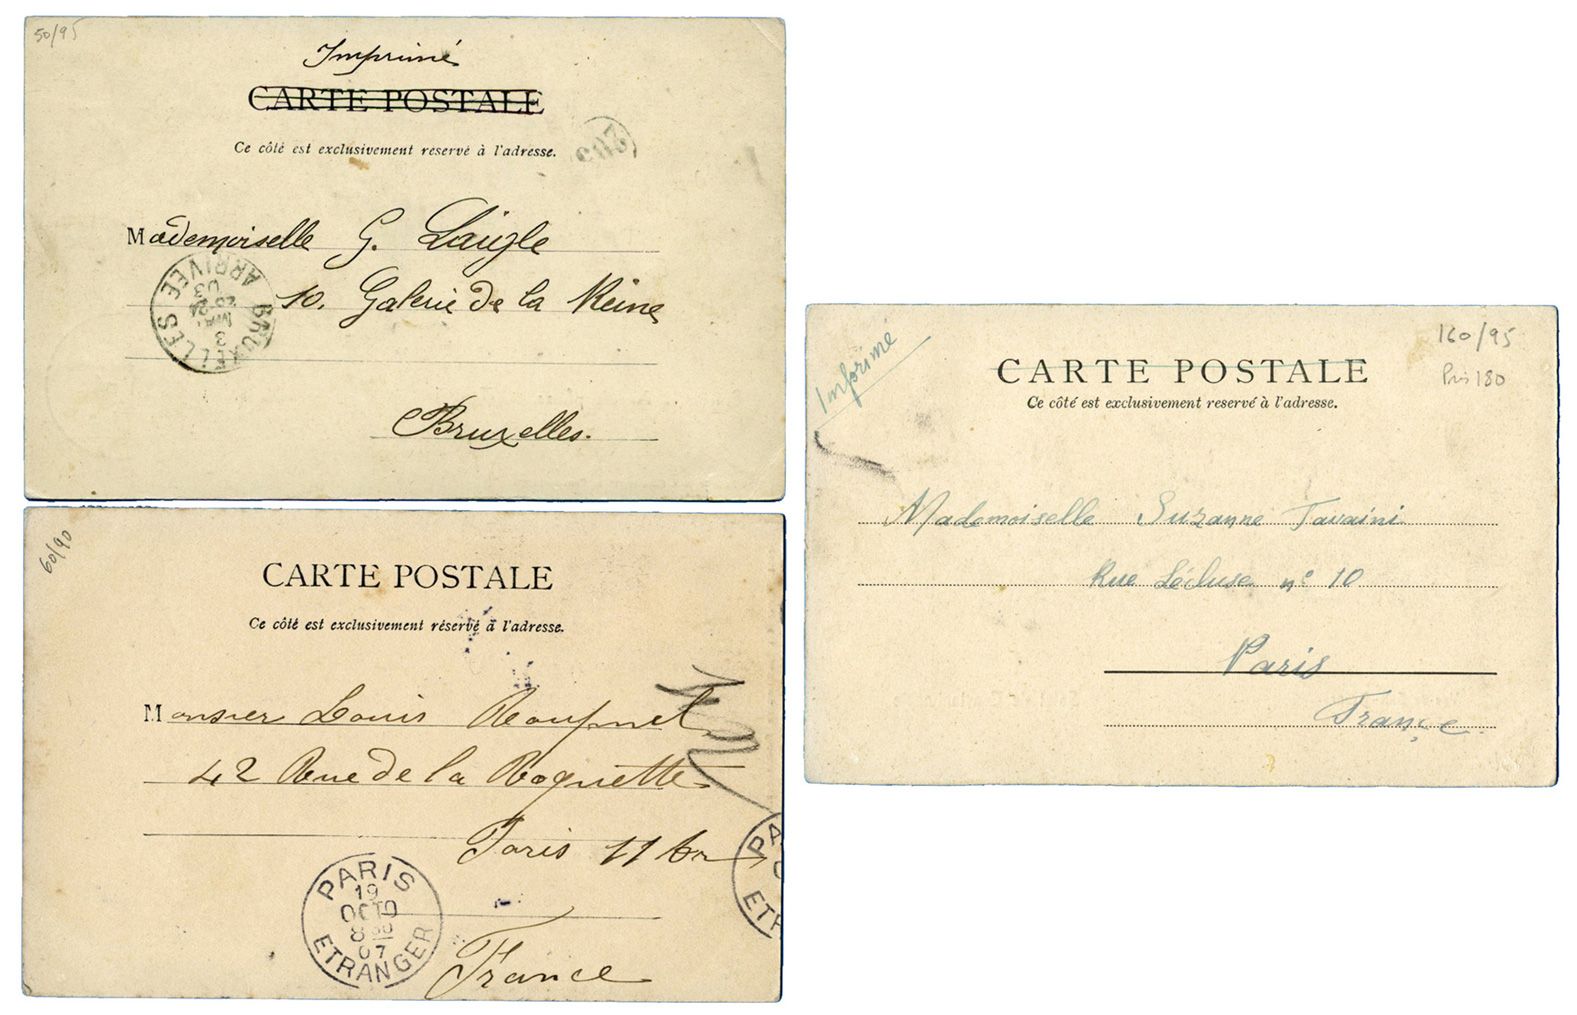 50/95
Imprimé
CARTE POSTALE
Ce côté est exclusivement reservé à l'adresse.
203
Mademoiselle G. Laigle
10. Galerie de la Reine
BRUXELLES
ARRIVEE
3
03
Bruxelles.
60/90
CARTE POSTALE
Ce côté est exclusivement réservé à l'adresse.
Monsier Louis
42 Rue de la Roquette
Paris 11
PARIS
19
OCTO
07
ETRANGER
PA
ETR
France
Imprimé
160/95
CARTE POSTALE
Pris 180
Ce côté est exclusivement reservé à l'adresse.
Mademoiselle Suzanne Tavaini
Rue Lécluse n° 10
Paris
France